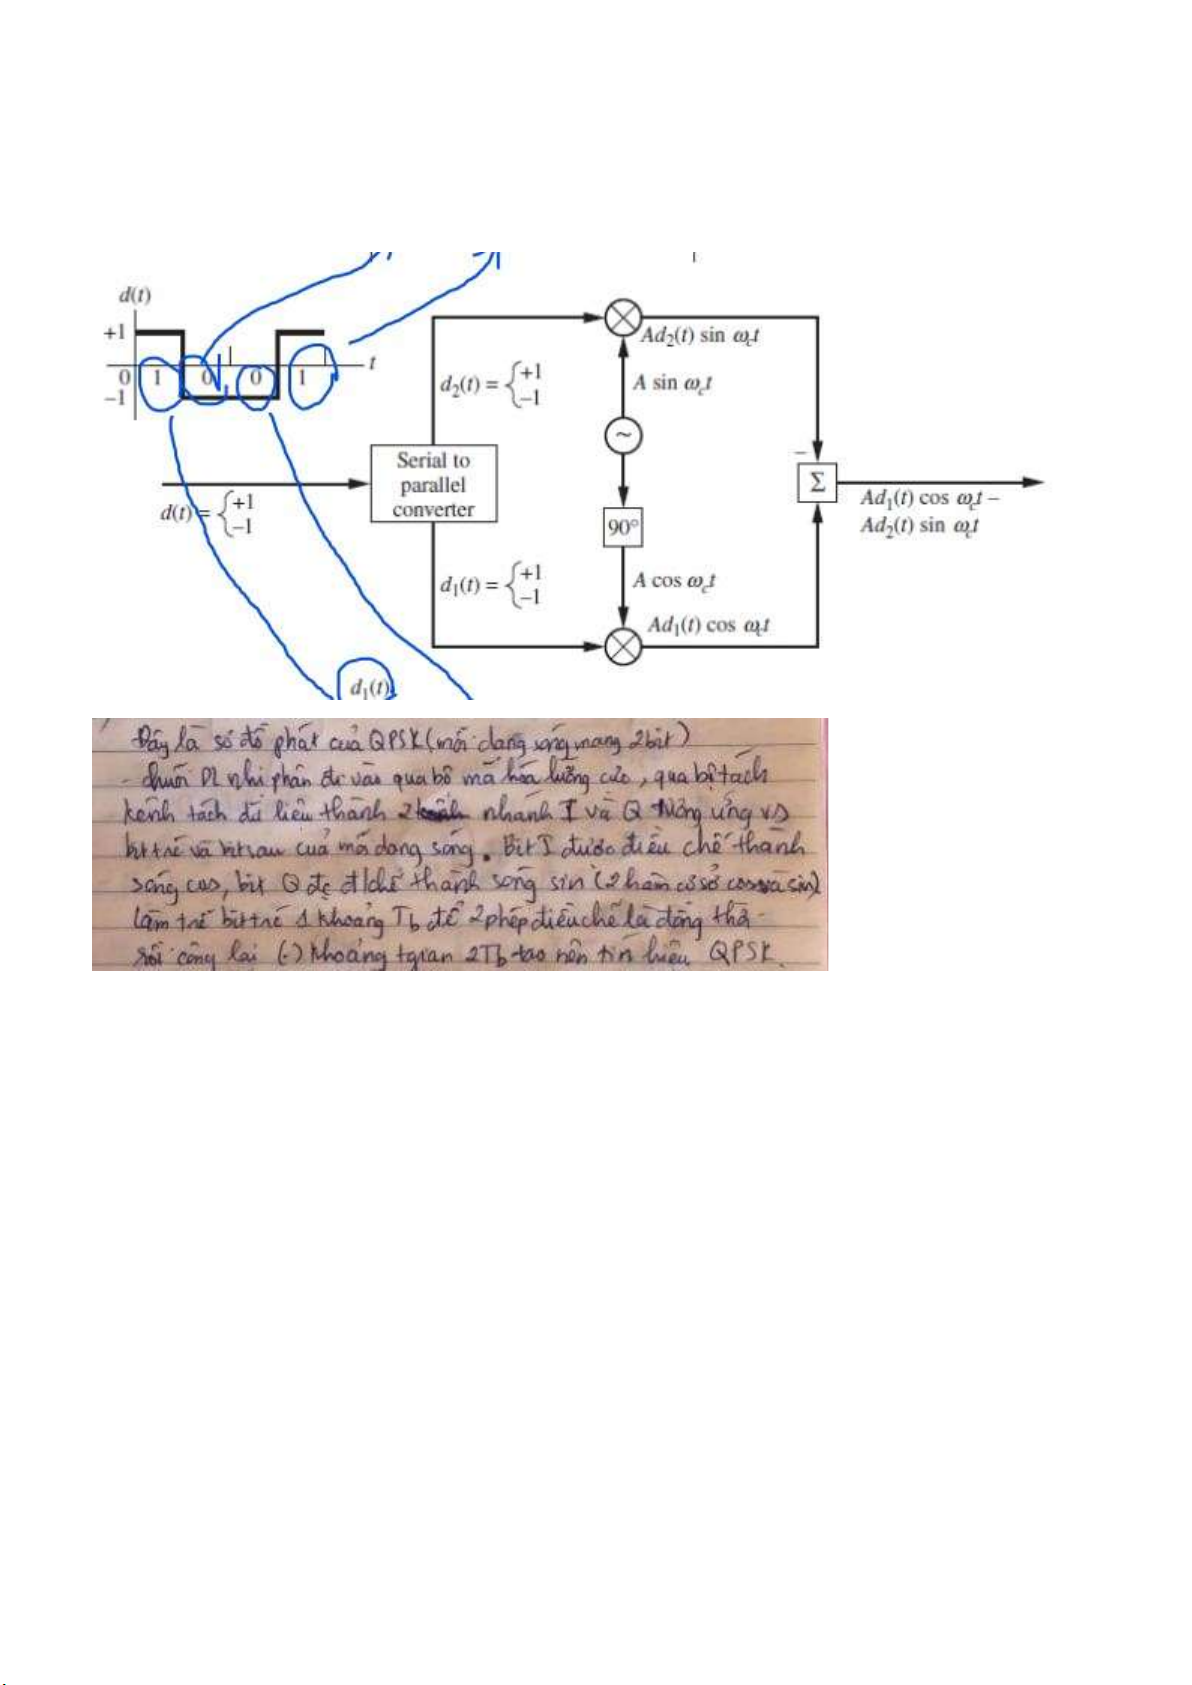 d(t)
+1
0
−1
1 0 0 1
t
d(t) = {+1 −1
Serial to
parallel
converter
d₂(t) = {+1 −1
d₁(t) = {+1 −1
Ad₂(t) sin ω꜀t
A sin ω꜀t
~
90°
A cos ω꜀t
Ad₁(t) cos ω꜀t
−
Σ
Ad₁(t) cos ω꜀t −
Ad₂(t) sin ω꜀t
d₁(t)
Đây là sơ đồ phát của QPSK (mỗi dạng sóng mang 2 bit)
- chuỗi DL nhị phân đi vào qua bộ mã hóa lưỡng cực, qua bộ tách
kênh tách dữ liệu thành 2 nhánh I và Q tương ứng vs
bit trẻ và bit sau của mỗi dạng sóng. Bit I được điều chế thành
sóng cos, bit Q đc đ/chế thành sóng sin (2 hàm cơ sở cos và sin)
làm trễ bit trẻ 1 khoảng Tb để 2 phép điều chế là đồng thờ
rồi cộng lại (-) khoảng tgian 2Tb tạo nên tín hiệu QPSK.